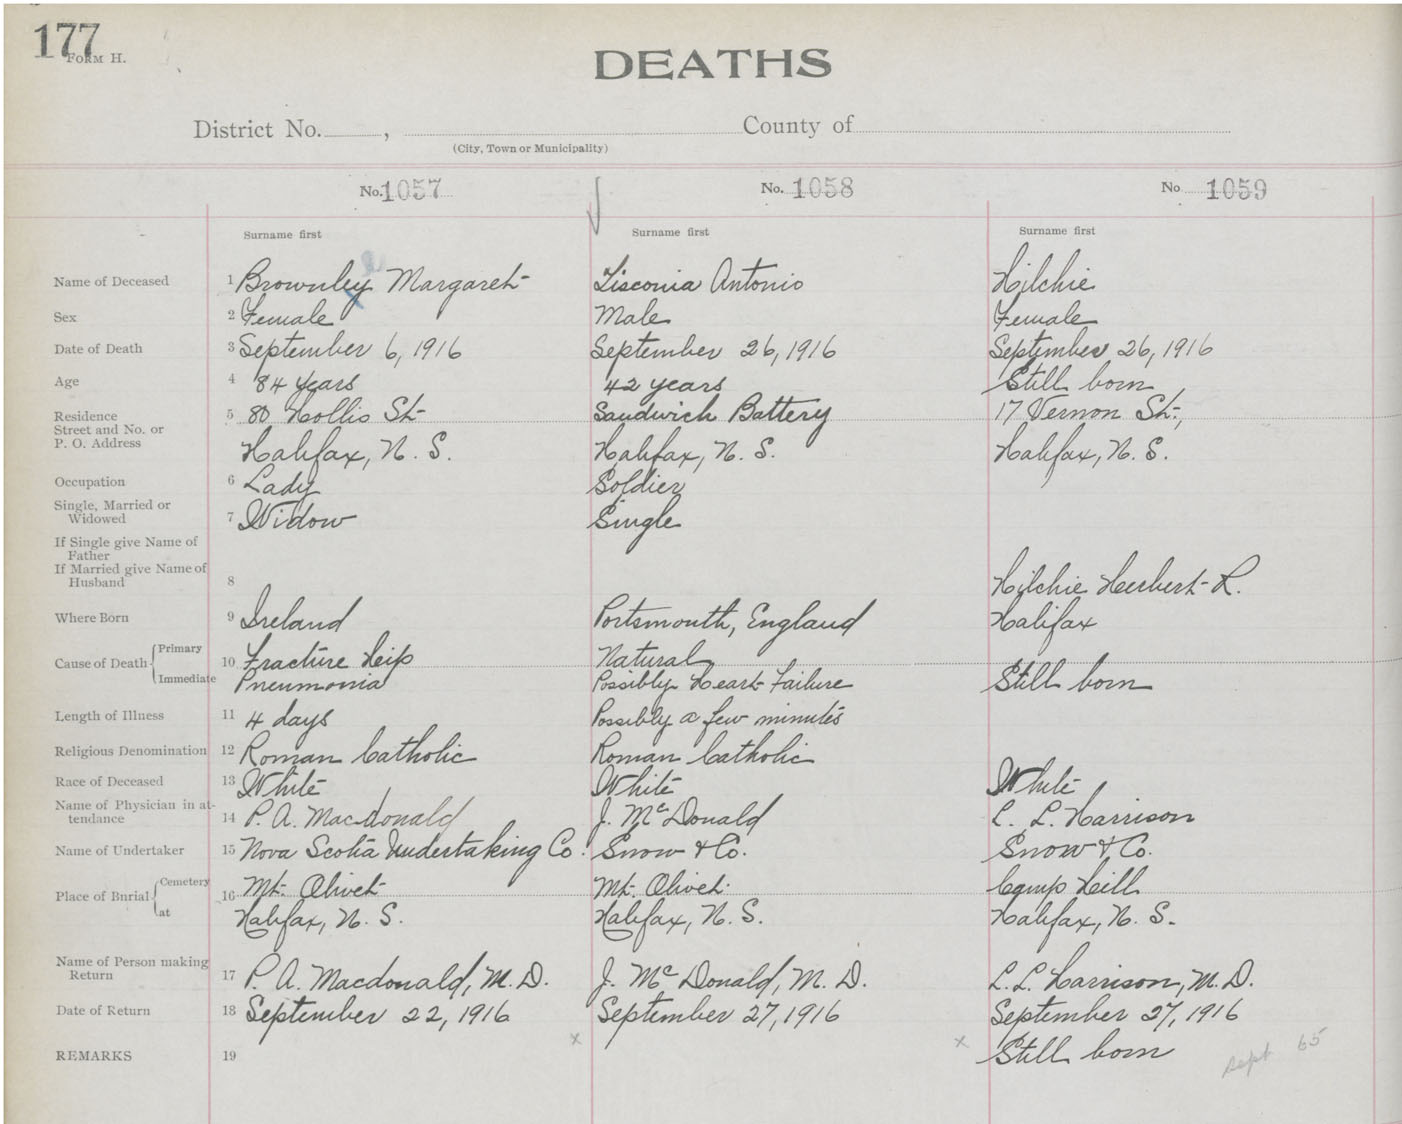 177
FORM H.
DEATHS
District No. , County of
(City, Town or Municipality)
No. 1057 No. 1058 No. 1059
Surname first Surname first Surname first
Name of Deceased 1 Brownley Margaret Lisconia Antonio Hilchie
Sex 2 Female Male Female
Date of Death 3 September 6, 1916 September 26, 1916 September 26, 1916
Age 4 84 years 42 years Still born
Residence 5 80 Hollis St Sandwich Battery 17 Vernon St.,
Street and No. or
P. O. Address Halifax, N. S. Halifax, N. S. Halifax, N. S.
Occupation 6 Lady Soldier
Single, Married or
Widowed 7 Widow Single
If Single give Name of
Father
If Married give Name of
Husband 8 Hilchie Herbert R.
Where Born 9 Ireland Portsmouth, England Halifax
Cause of Death Primary 10 Fracture Hip Natural
Immediate Pneumonia Possibly Heart Failure Still born
Length of Illness 11 4 days Possibly a few minutes
Religious Denomination 12 Roman Catholic Roman Catholic
Race of Deceased 13 White White White
Name of Physician in at-
tendance 14 P. A. Macdonald J. McDonald L. L. Harrison
Name of Undertaker 15 Nova Scotia Undertaking Co. Snow & Co. Snow & Co.
Place of Burial Cemetery 16 Mt. Olivet Mt. Olivet Camp Hill
at Halifax, N. S. Halifax, N. S. Halifax, N. S.
Name of Person making
Return 17 P. A. Macdonald, M. D. J. McDonald, M. D. L. L. Harrison, M. D.
Date of Return 18 September 22, 1916 September 27, 1916 September 27, 1916
REMARKS 19 x x Still born Sept 65